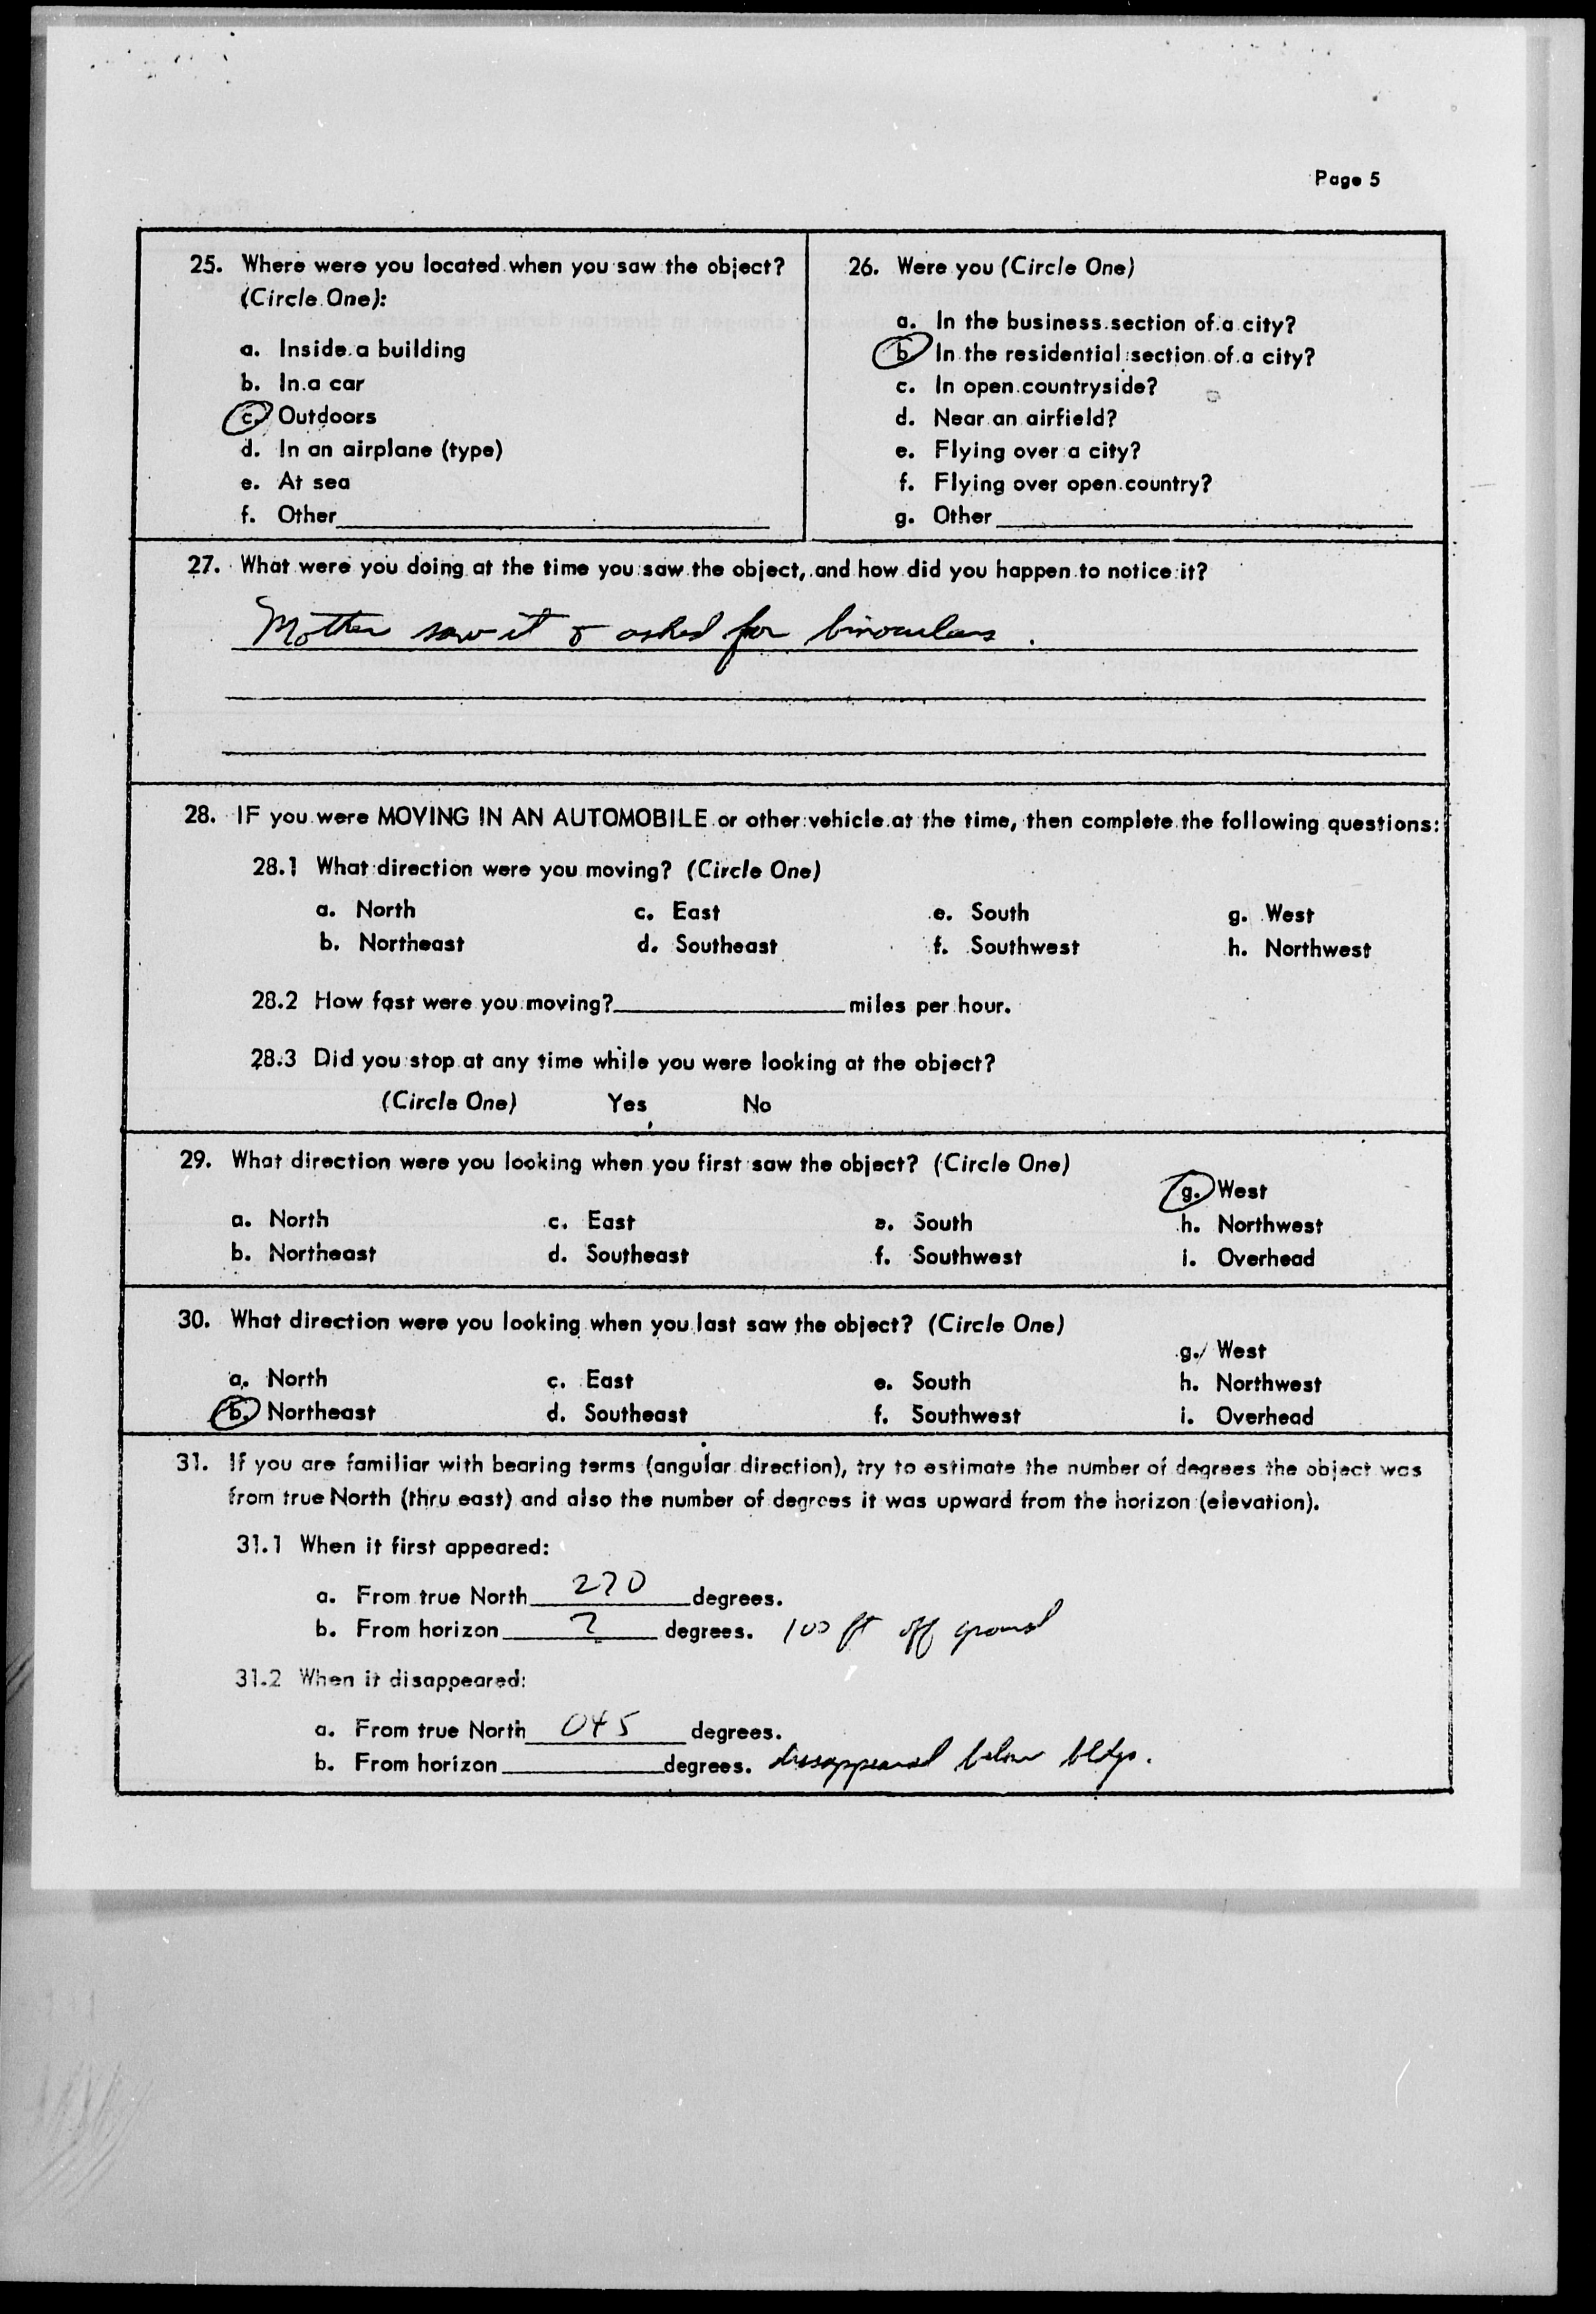 Page 5
25. Where were you located when you saw the object?
(Circle One):
a. Inside a building
b. In a car
c. Outdoors
d. In an airplane (type)
e. At sea
f. Other
26. Were you (Circle One)
a. In the business section of a city?
b. In the residential section of a city?
c. In open countryside?
d. Near an airfield?
e. Flying over a city?
f. Flying over open country?
g. Other
27. What were you doing at the time you saw the object, and how did you happen to notice it?
Mother saw it & asked for binoculars.
28. IF you were MOVING IN AN AUTOMOBILE or other vehicle at the time, then complete the following questions:
28.1 What direction were you moving? (Circle One)
a. North c. East e. South g. West
b. Northeast d. Southeast f. Southwest h. Northwest
28.2 How fast were you moving? miles per hour.
28.3 Did you stop at any time while you were looking at the object?
(Circle One) Yes No
29. What direction were you looking when you first saw the object? (Circle One)
g. West
a. North c. East e. South h. Northwest
b. Northeast d. Southeast f. Southwest i. Overhead
30. What direction were you looking when you last saw the object? (Circle One)
g. West
a. North c. East e. South h. Northwest
b. Northeast d. Southeast f. Southwest i. Overhead
31. If you are familiar with bearing terms (angular direction), try to estimate the number of degrees the object was
from true North (thru east) and also the number of degrees it was upward from the horizon (elevation).
31.1 When it first appeared:
a. From true North 270 degrees.
b. From horizon ? degrees. 100 ft off ground
31.2 When it disappeared:
a. From true North 045 degrees.
b. From horizon degrees. dissappeared below bldgs.